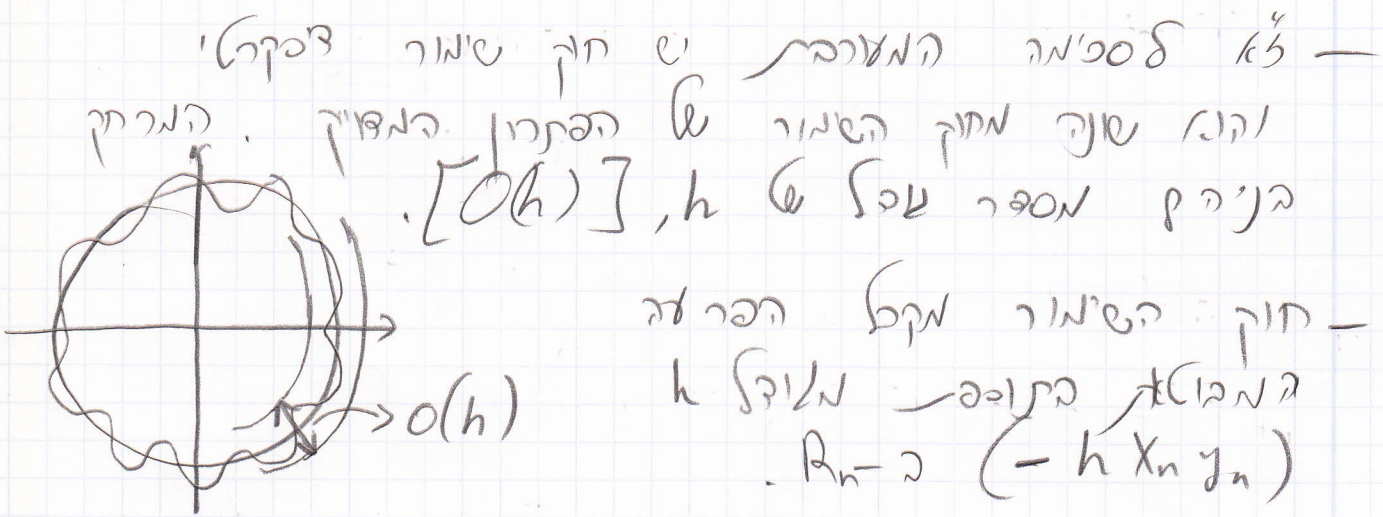 — ז"א לסכימה המעורבת יש חוק שימור דיסקרטי
והוא שונה מחוק השימור של הפתרון המדויק. המרחק
ביניהם מסדר גודל של h, [O(h)].
— חוק השימור מקבל הפרעה
המבוטאת בתוספת מגודל h
(-h Xn yn) ב-Rn.
O(h)